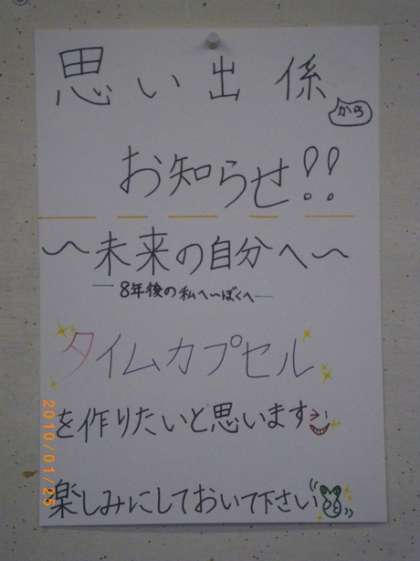 思い出係
から
お知らせ!!
〜未来の自分へ〜
8年後の私へ〜ぼくへ
タイムカプセル
を作りたいと思います
楽しみにしておいて下さい
2010/01/25